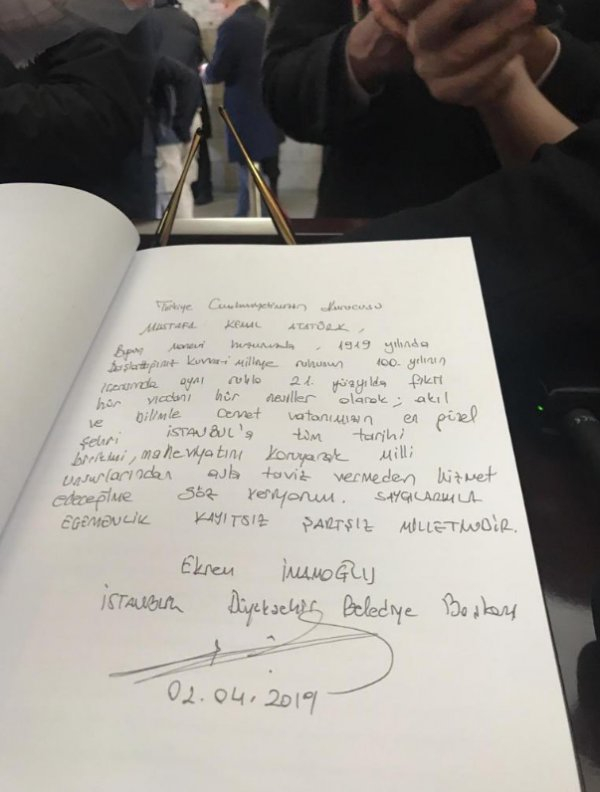 Türkiye Cumhuriyetinin Kurucusu
MUSTAFA KEMAL ATATÜRK,
Bugün manevi huzurunda, 1919 yılında
başlattığınız kuvayi milliye ruhunun 100. yılının
içerisinde aynı ruhla 21. yüzyılda fikri
hür vicdanı hür nesiller olarak; akıl
ve bilimle cennet vatanımızın en güzel
şehri İSTANBUL'a tüm tarihi
birikimi, maneviyatını koruyarak milli
unsurlarından asla taviz vermeden hizmet
edeceğime söz veriyorum. SAYGILARIMLA
EGEMENLİK KAYITSIZ ŞARTSIZ MİLLETİNDİR.
Ekrem İMAMOĞLU
İSTANBUL Büyükşehir Belediye Başkanı
02.04.2019